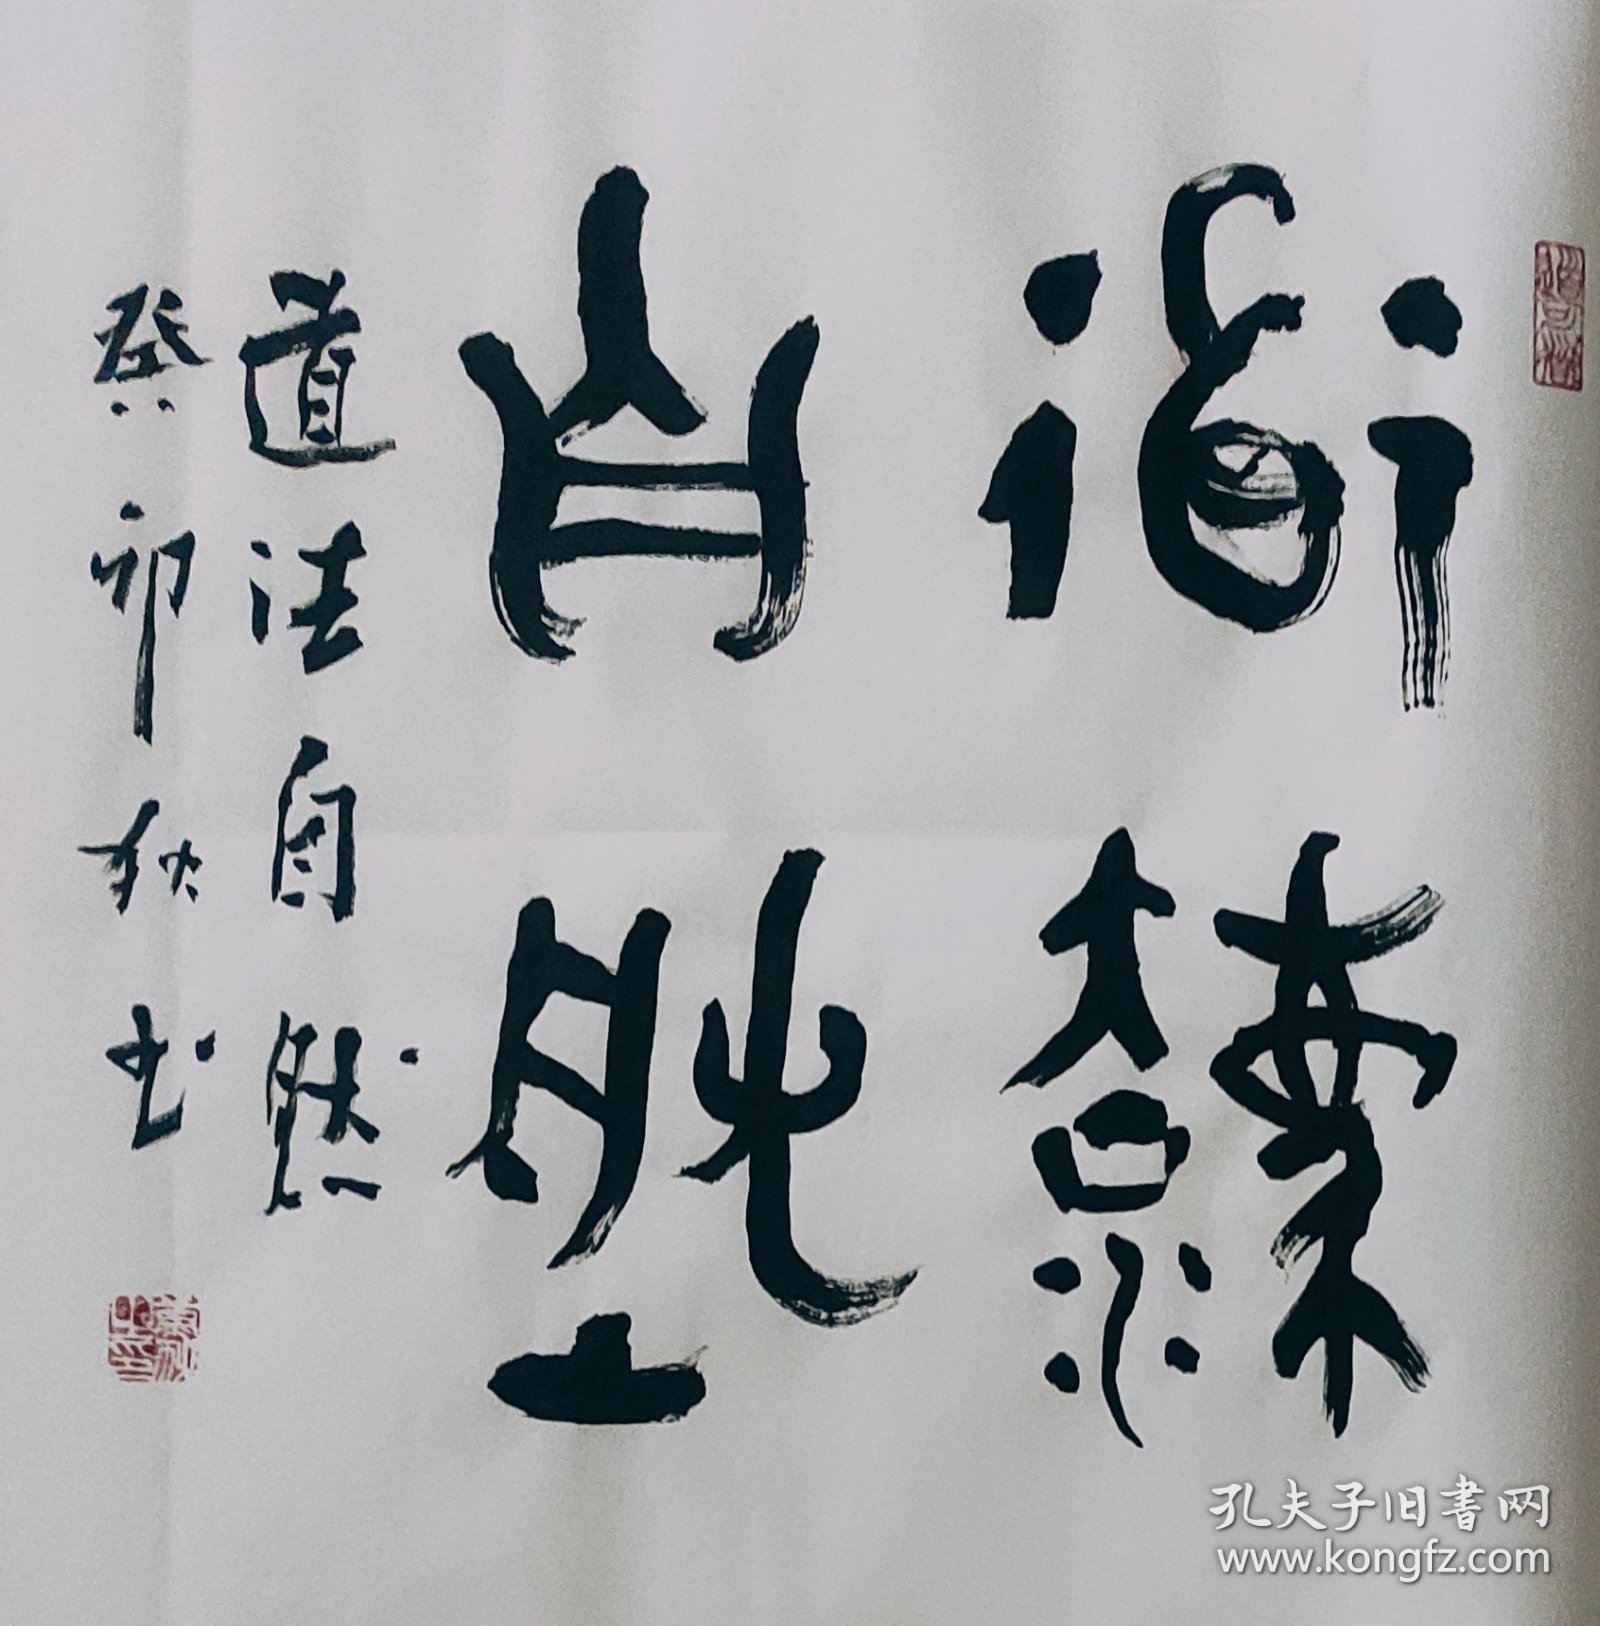 道法
自然
道法自然
癸卯秋书
孔夫子旧书网
www.kongfz.com